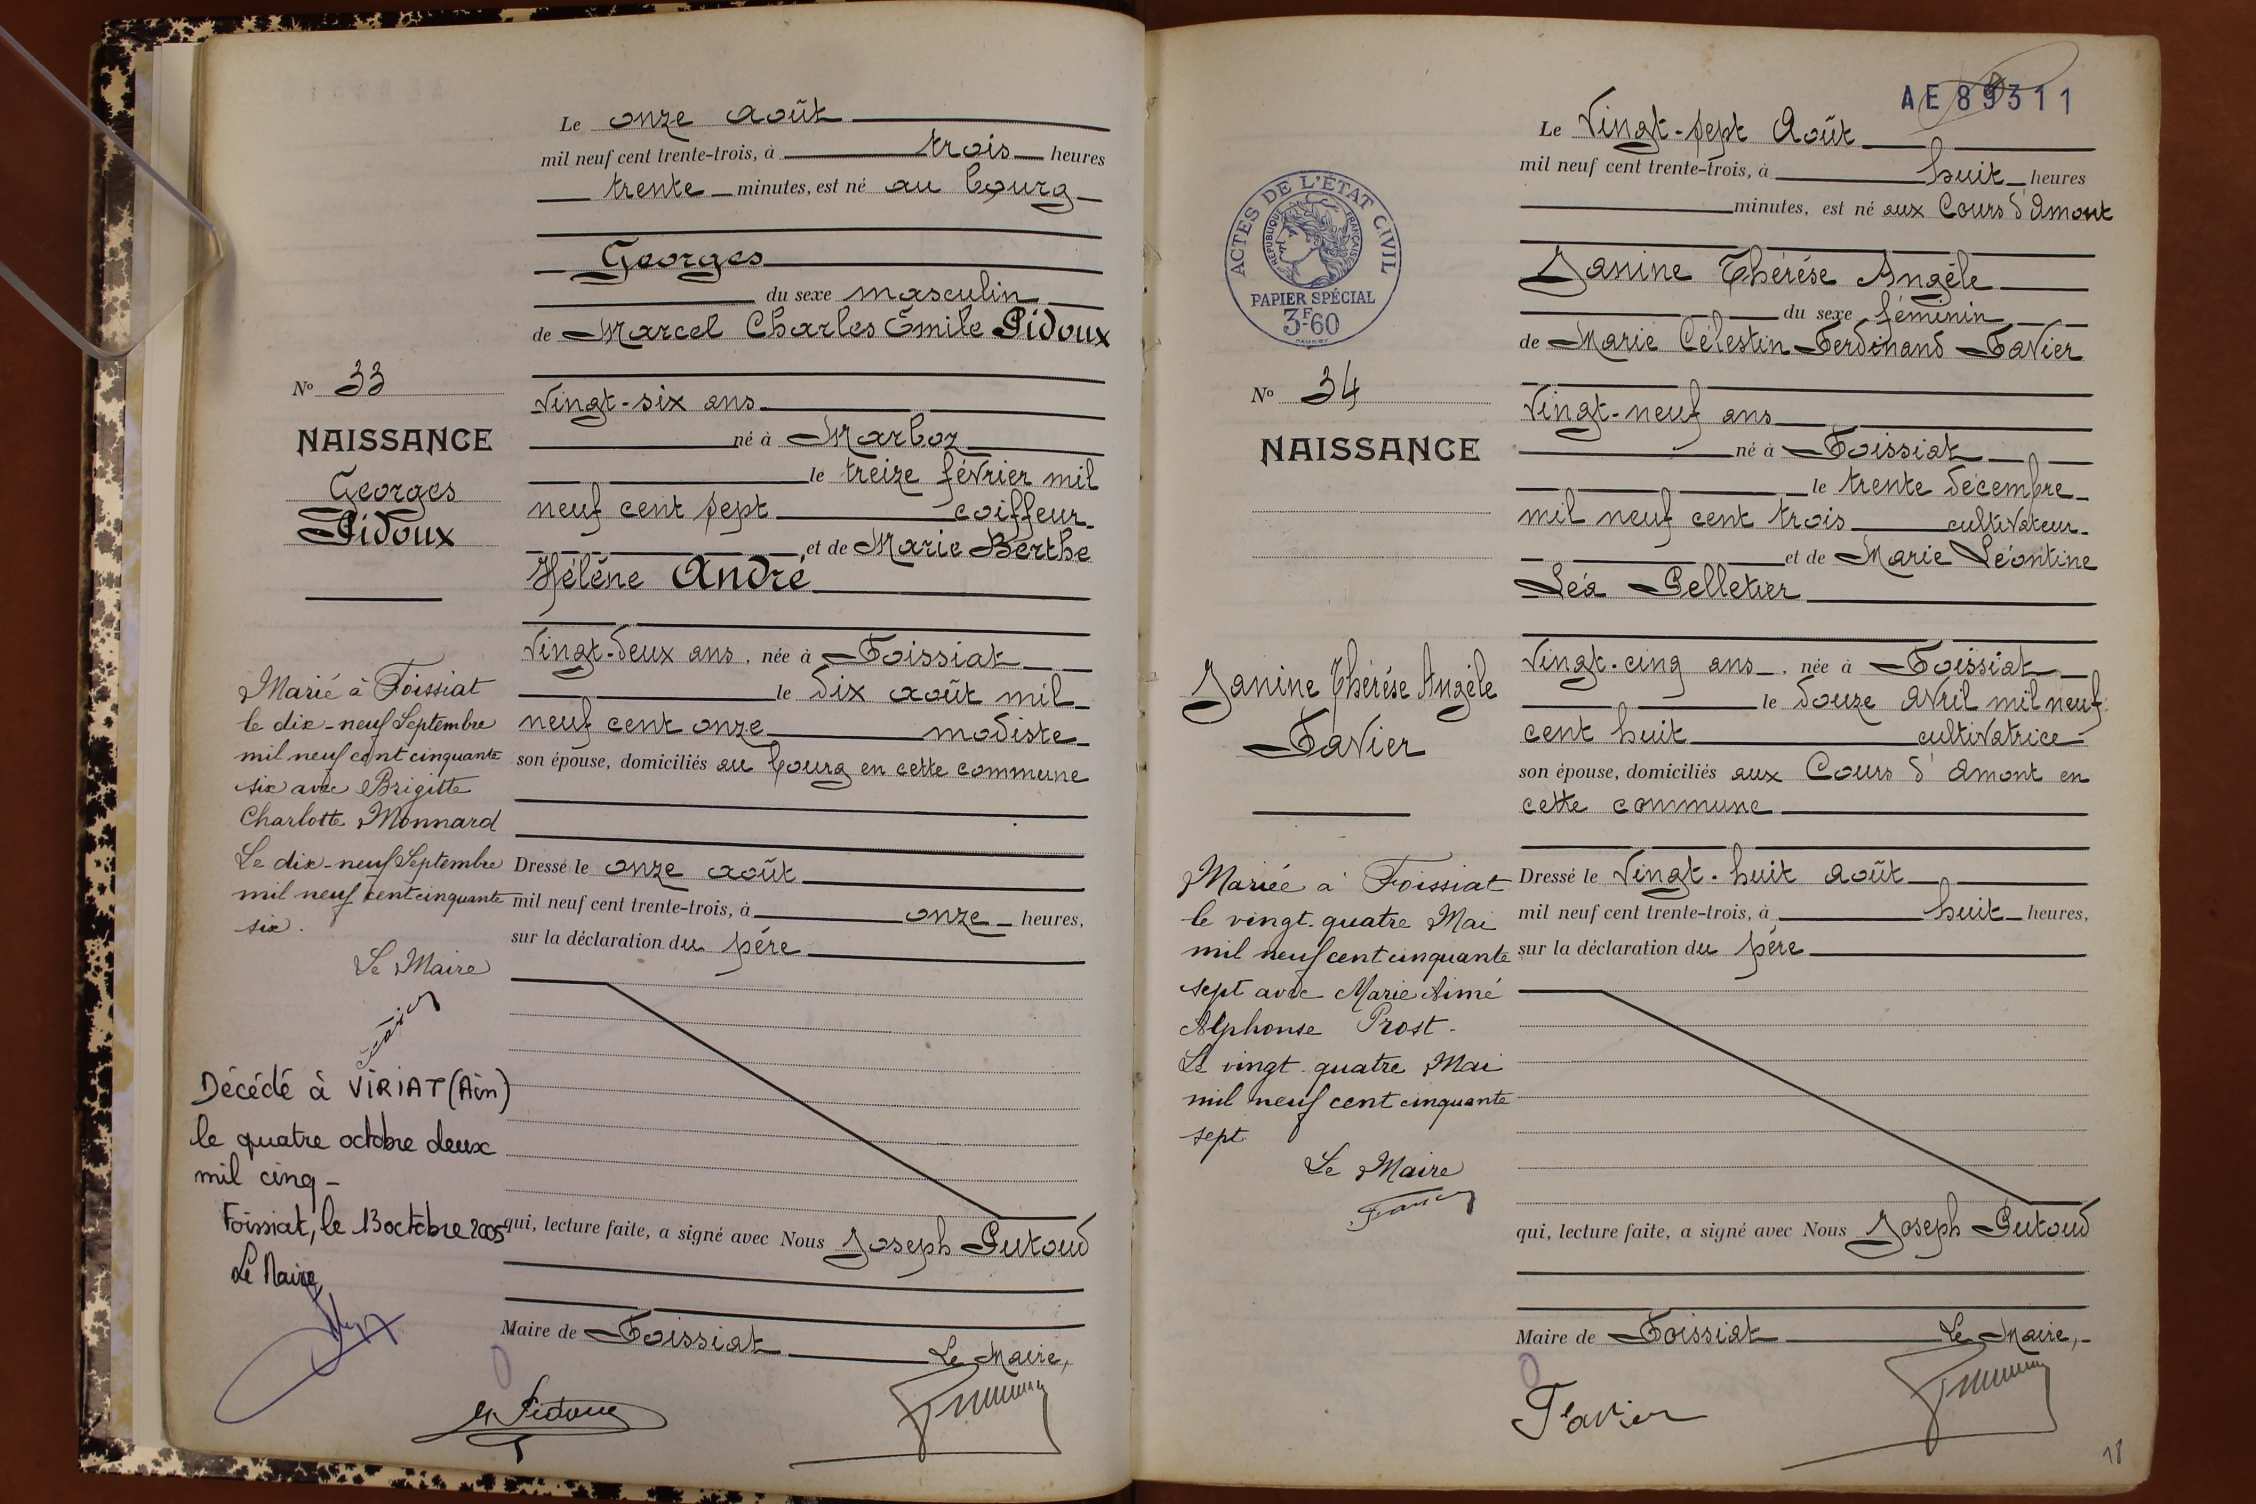 Le onze août
mil neuf cent trente-trois, à trois heures
trente minutes, est né au bourg
Georges
du sexe masculin
de Marcel Charles Émile Pidoux
N° 33
vingt-six ans
NAISSANCE
né à Marboz
le treize février mil
Georges
neuf cent sept coiffeur
Pidoux
et de Marie Berthe
Hélène André
vingt-deux ans, née à Foissiat
le dix août mil
neuf cent onze modiste
son épouse, domiciliés au bourg en cette commune
Dressé le onze août
mil neuf cent trente-trois, à onze heures,
sur la déclaration du père
qui, lecture faite, a signé avec Nous Joseph Putoud
Maire de Foissiat Le Maire,
M. Pidoux
Marié à Foissiat
le dix-neuf Septembre
mil neuf cent cinquante
six avec Brigitte
Charlotte Monnard
Le dix-neuf Septembre
mil neuf cent cinquante
six.
Le Maire
Décédé à VIRIAT (Ain)
le quatre octobre deux
mil cinq -
Foissiat, le 13 octobre 2005
Le Maire
AE 89311
Le Vingt-sept Août
mil neuf cent trente-trois, à huit heures
minutes, est né aux Cours d'Amont
ACTES DE L'ÉTAT CIVIL
RÉPUBLIQUE FRANÇAISE
PAPIER SPÉCIAL
3F-60
Janine Thérèse Angèle
du sexe féminin
de Marie Célestin Ferdinand Favier
N° 34
Vingt-neuf ans
NAISSANCE
né à Foissiat
le trente décembre
mil neuf cent trois cultivateur
et de Marie Léontine
Léa Pelletier
Vingt-cinq ans, née à Foissiat
le douze avril mil neuf
cent huit cultivatrice
son épouse, domiciliés aux Cours d'Amont en
cette commune
Dressé le Vingt-huit août
mil neuf cent trente-trois, à huit heures,
sur la déclaration du père
qui, lecture faite, a signé avec Nous Joseph Putoud
Maire de Foissiat Le Maire,
Favier
Janine Thérèse Angèle
Favier
Mariée à Foissiat
le vingt-quatre Mai
mil neuf cent cinquante
sept avec Marie Aimé
Alphonse Prost.
Le vingt-quatre Mai
mil neuf cent cinquante
sept
Le Maire
18